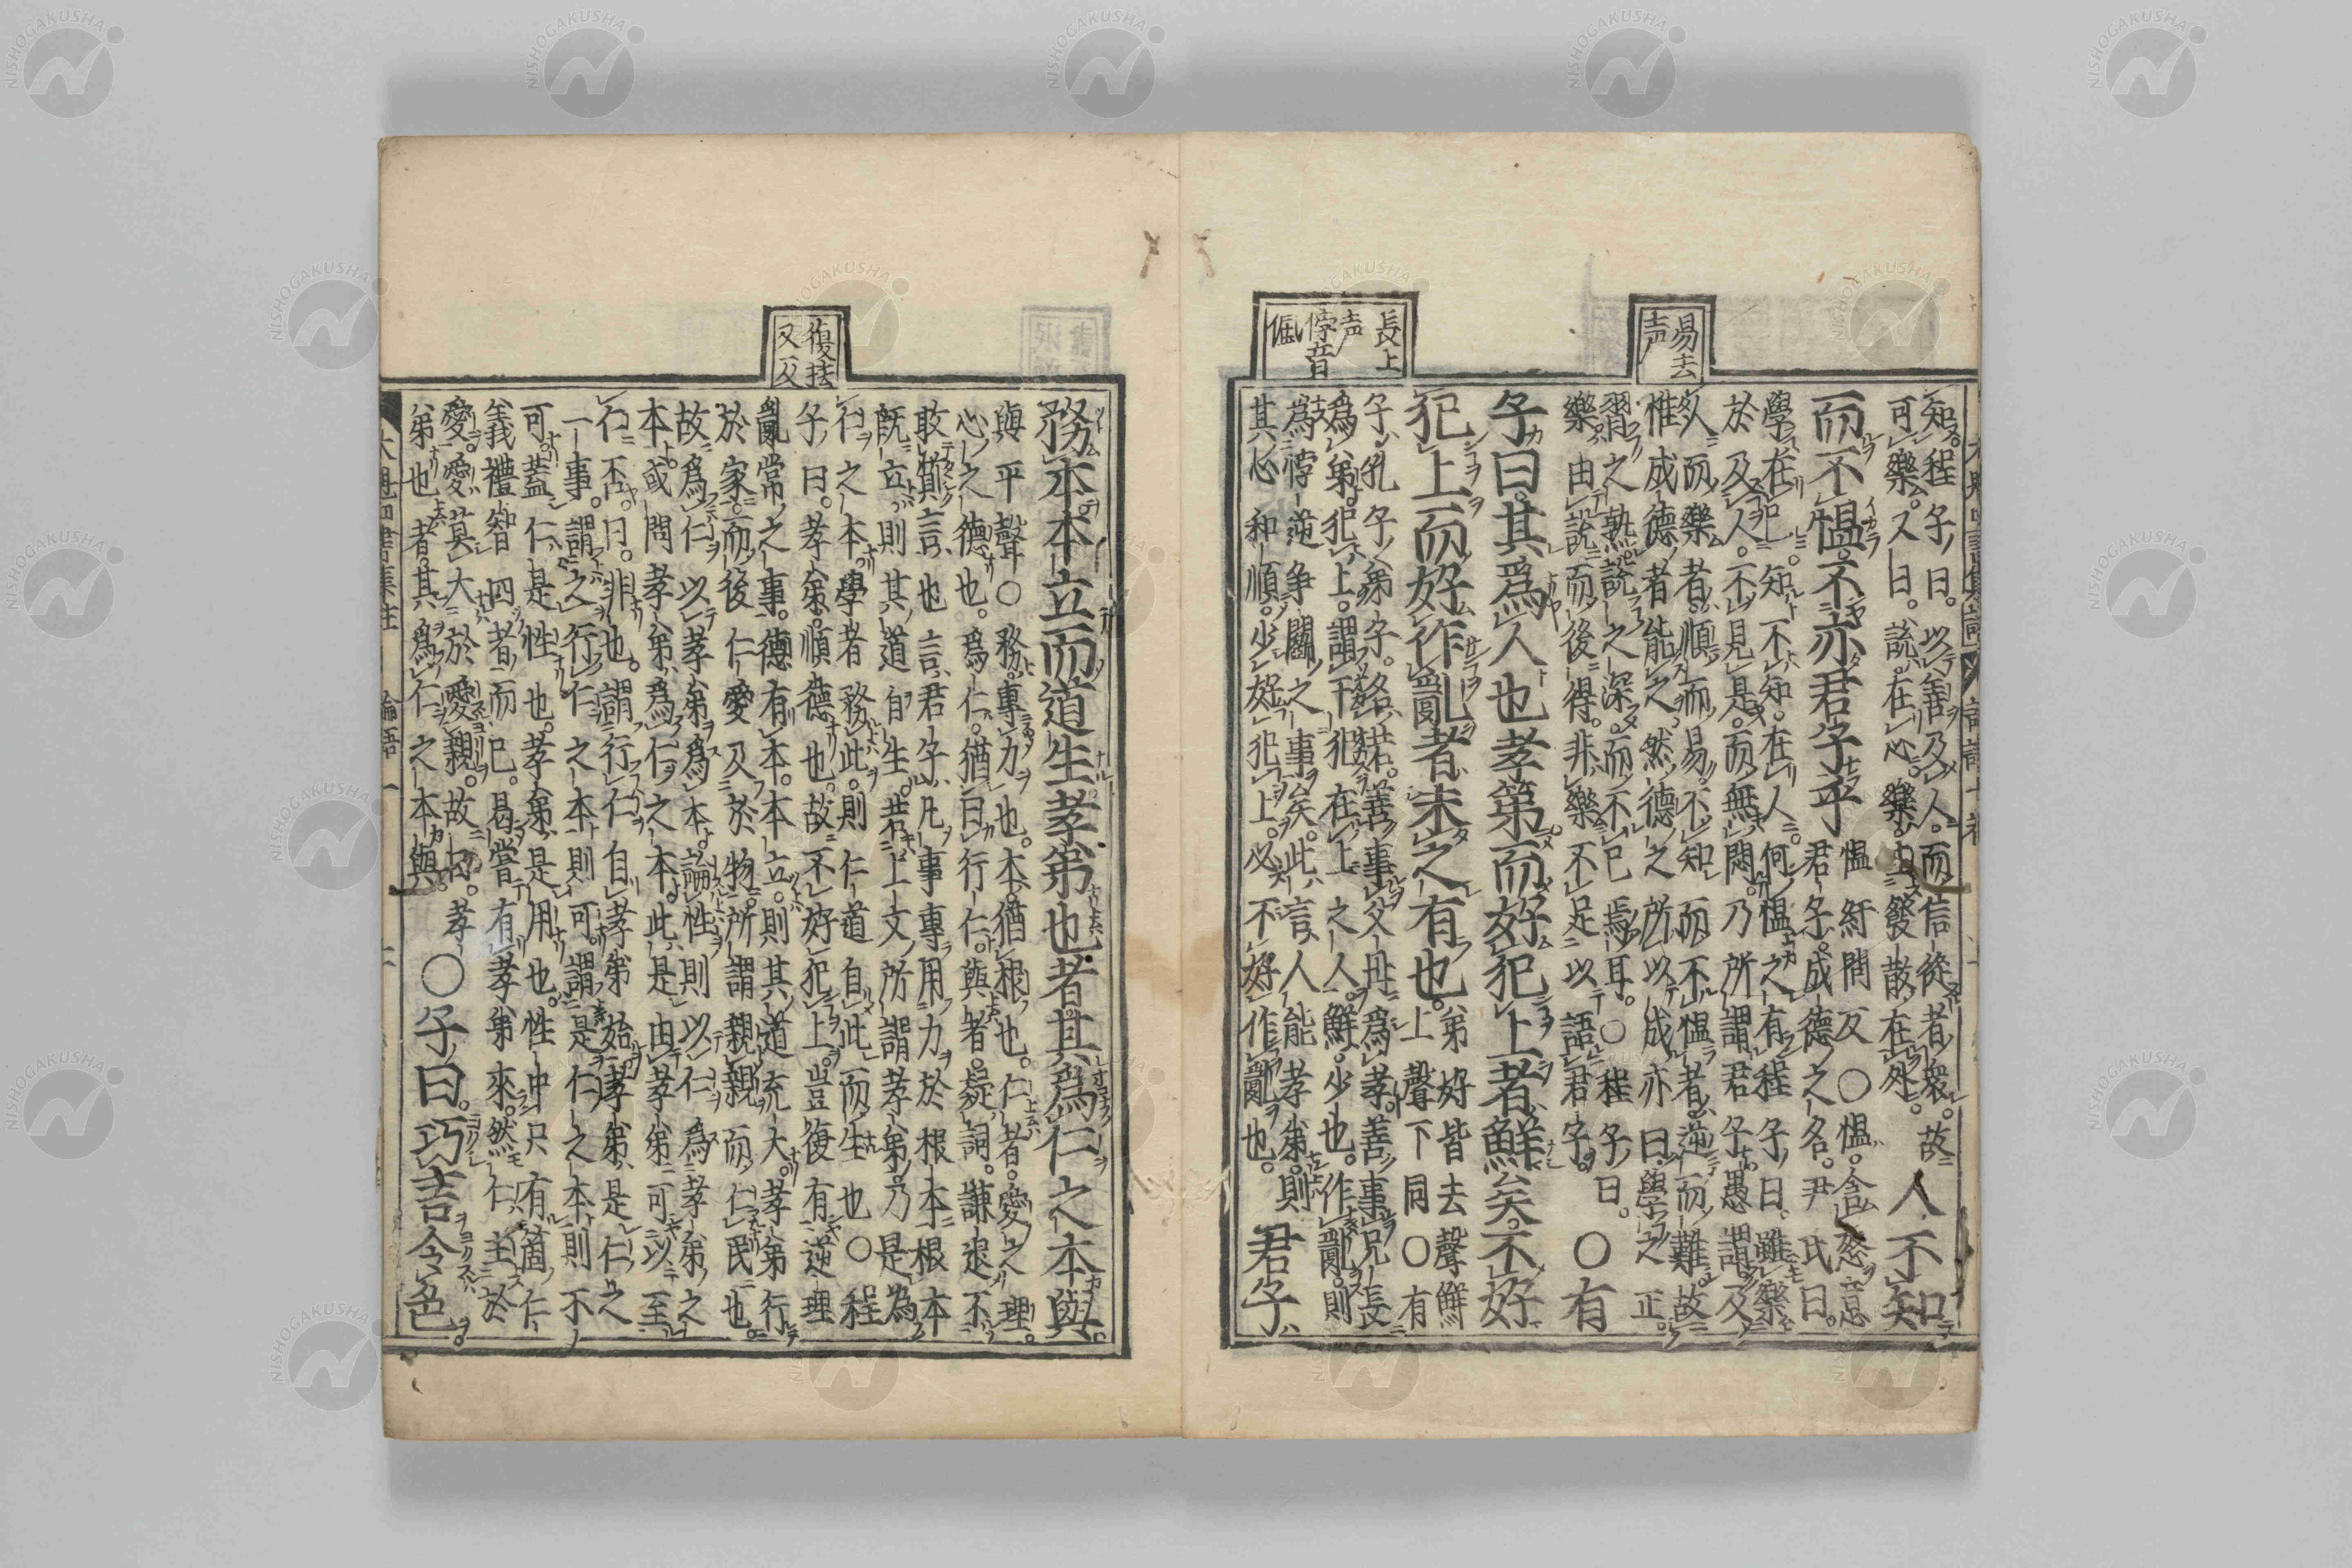 知。程子曰。以善及人。而信從者衆。故
可樂。又曰。説在心。樂主發散在外。
人不知
而不慍。不亦君子乎
慍紆問反○慍。含怒意
君子。成德之名。尹氏曰。
學在己。知不知。在人。何慍之有。程子曰。雖樂
於及人。不見是。而無悶。乃所謂君子愚謂及
人而樂者。順而易。不知而不慍者。逆而難。故
惟成德者能之。然德之所以成亦曰學之正。
習之熟。説之深。而不已焉耳。○程子曰。
樂由説而後得。非樂不足以語君子。
○有
子曰。其爲人也孝弟而好犯上者。鮮矣。不好
犯上而好作亂者。未之有也。
弟好皆去聲鮮
上聲下同○有
子孔子弟子。名若。善事父母爲孝。善事兄長
爲弟。犯上。謂干犯在上之人。鮮少也。作亂。則
爲悖逆争鬭之事矣。此言人能孝弟。則
其心和順。少好犯上。必不好作亂也。
君子
易去声
長上声
悖音
務本本立而道生孝弟也者。其爲仁之本與。
與平聲○務。專力也。本。猶根也。仁者。愛之理。
心之德也。爲仁。猶曰行仁。與者。疑詞。謙退不
敢質言也言君子凡事專用力於根本根本
既立則其道自生。若上文所謂孝弟。乃是爲
仁之本學者務此。則仁道自此而生也○程
子曰。孝弟。順德也。故不好犯上。豈復有逆理
亂常之事。德有本。本立。則其道充大。孝弟行
於家。而後仁愛及於物。所謂親親而仁民也。
故爲仁以孝弟爲本論性則以仁爲孝弟之
本或問孝弟爲仁之本此是由孝弟可以至
仁否曰。非也。謂行仁自孝弟始孝弟是仁之
一事。謂之行仁之本則可。謂是仁之本則不
可。蓋仁是性也。孝弟是用也。性中只有箇仁
義禮智四者而已。曷嘗有孝弟來。然仁主於
愛。愛莫大於愛親。故曰。孝
弟也者。其爲仁之本與。
○子曰。巧言令色。
復扶
又反
論語一